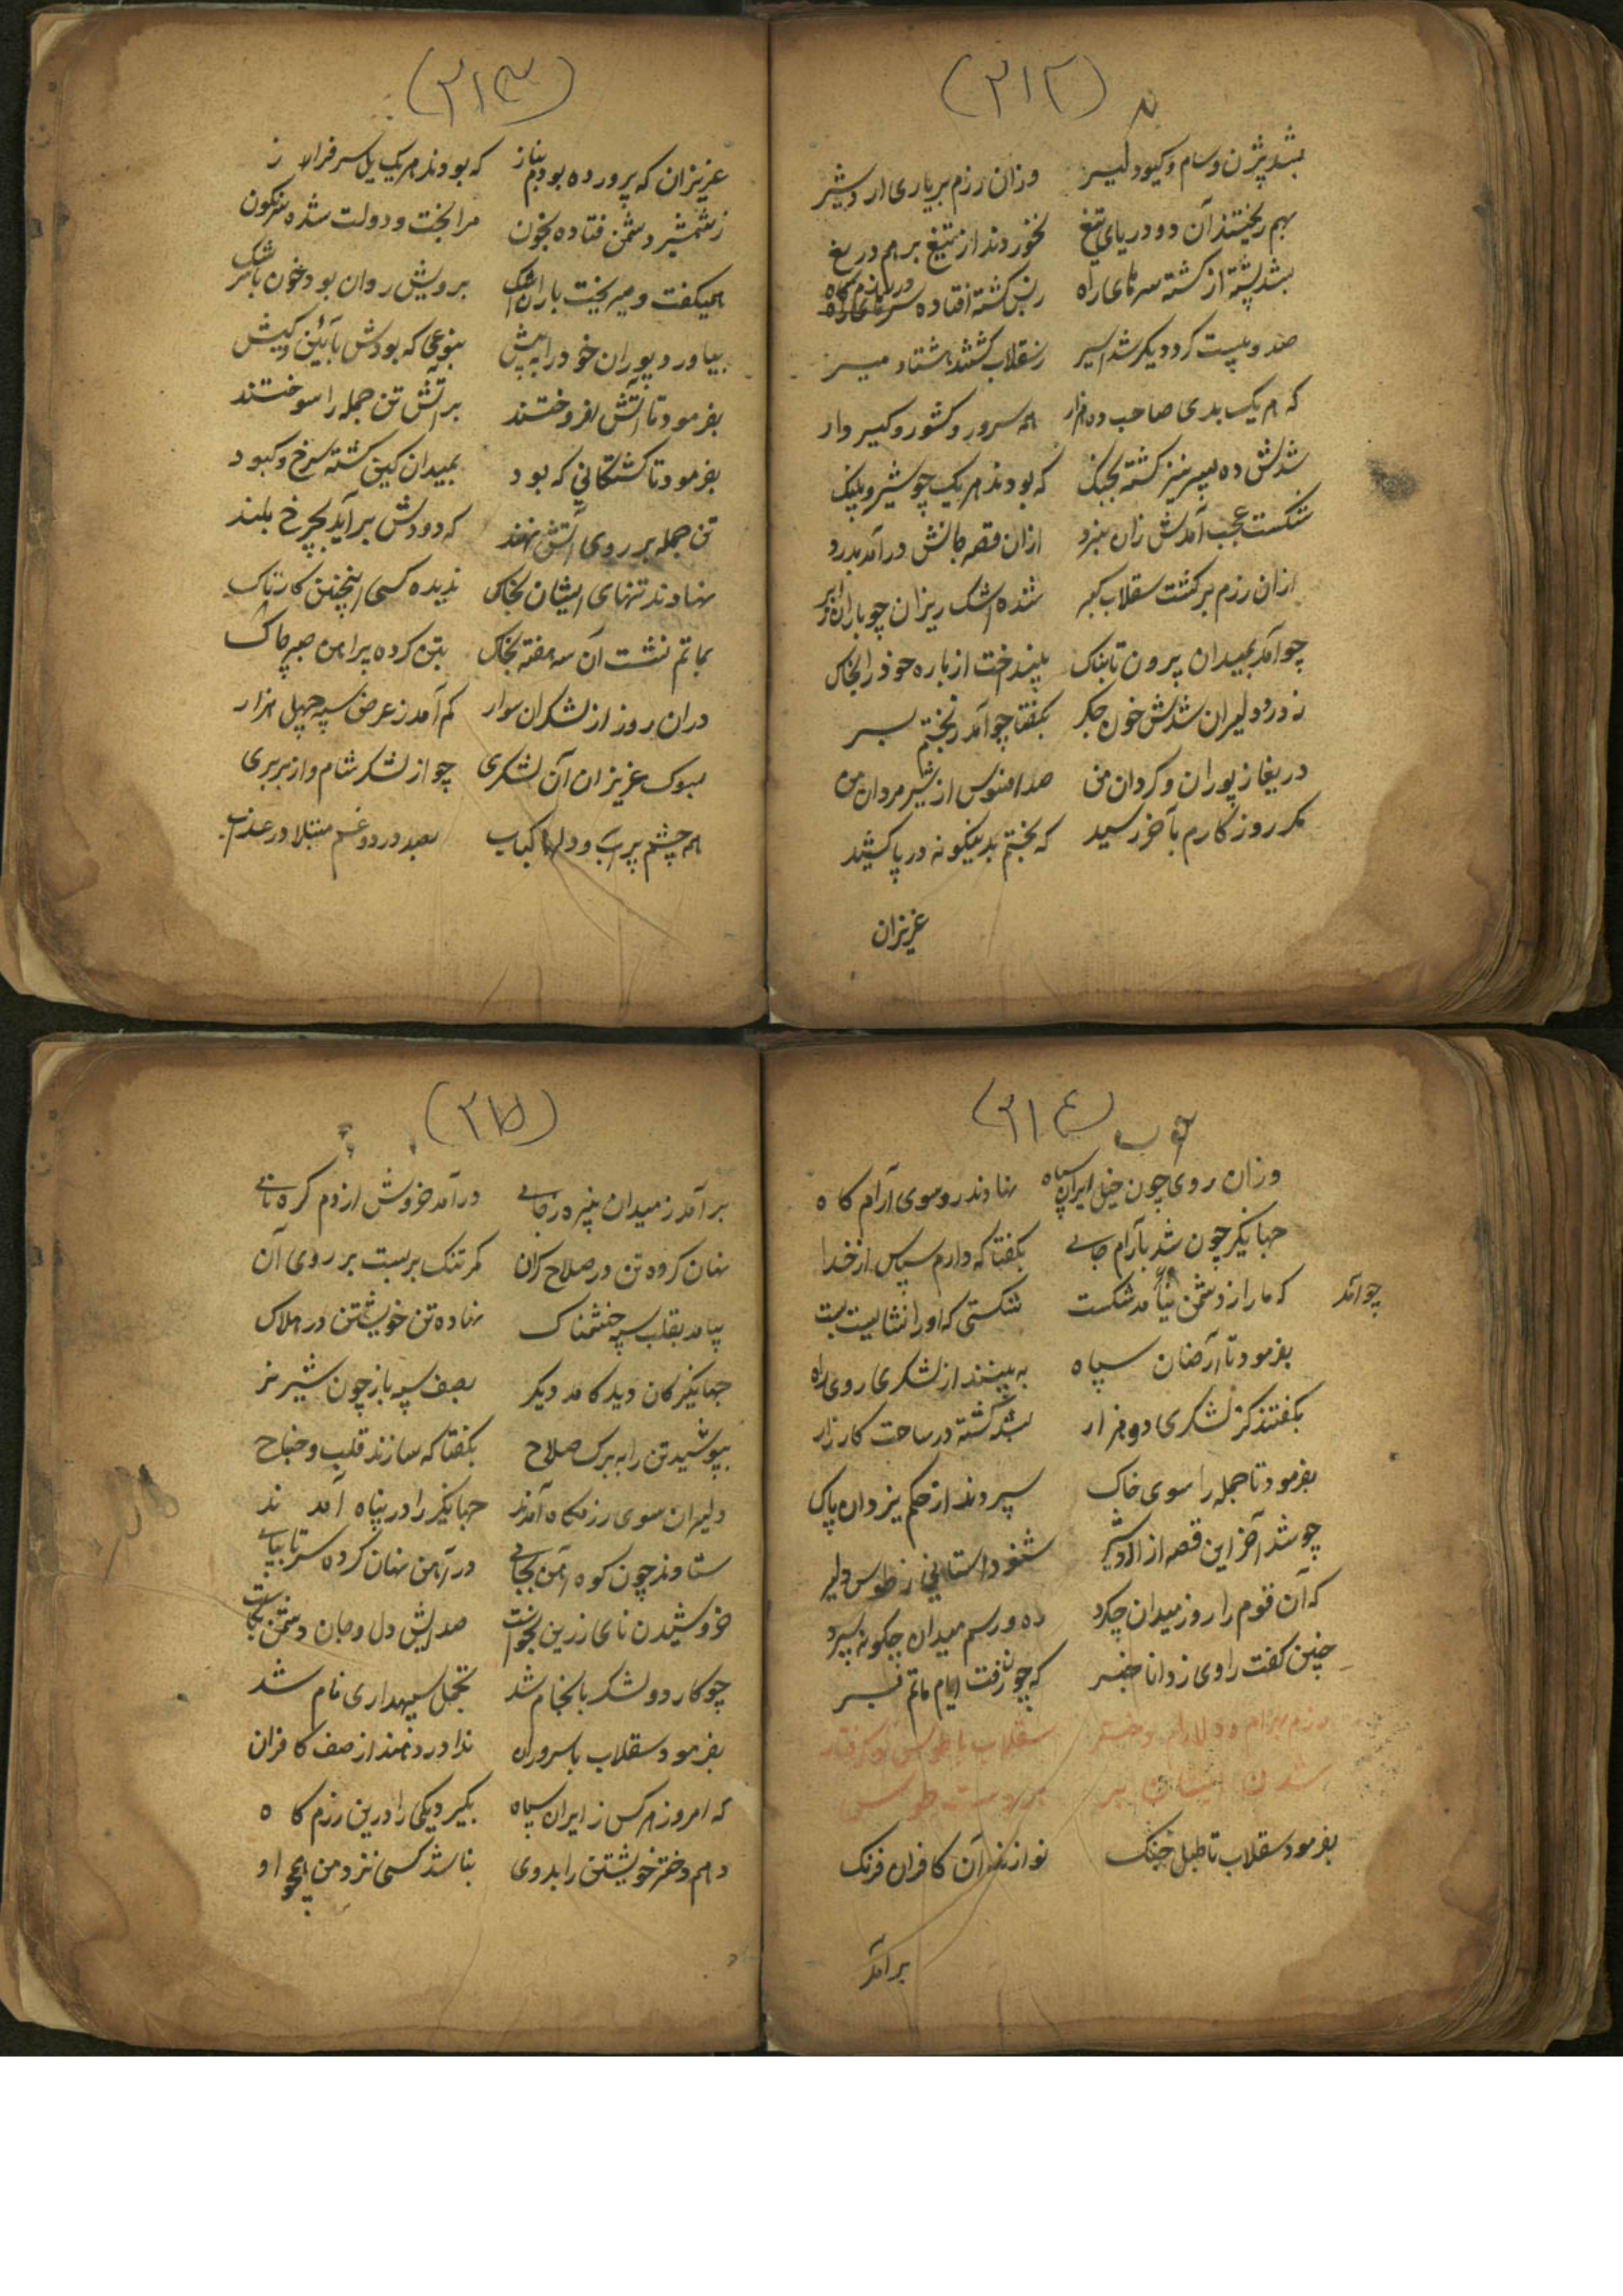 (۳۱۲)
بشد بیژن و سام و گیو دلیر وزان رزم بر یاری اردشیر
بهم ریختند آن دو دریای تیغ نخوردند از تیغ بر هم دریغ
بشد پشته از کشته سرهای راه ز بس کشته افتاده در رزمگاه
صد و بیست گرد دیگر شد اسیر ز سقلاب کشتند هشتاد میر
که هر یک بدی صاحب ده هزار همه سرور و کشور و گیر و دار
شدش ده پسر نیز کشته بجنگ که بودند هر یک چو شیر و پلنگ
شکست عجب آمدش زان نبرد ازان قصه جانش درآمد بدرد
ازان رزم برگشت سقلاب گبر شده اشک ریزان چو باران ز ابر
چو آمد بمیدان برون تابناک بینداخت از باره خود را بخاک
ز درد دلیران شدش خون جگر بگفتا چو آمد ز بختم بسر
دریغا ز پوران و گردان من صد افسوس از شیر مردان من
مگر روز کارم بآخر رسید که بختم بدینگونه در پا کشید
عزیزان
(۳۱۳)
عزیزان که پرورده بودم بناز که بودند هر یک یل سرفراز
ز شمشیر دشمن فتاده بخون مرا بخت و دولت شده سرنگون
همیگفت و میریخت باران اشک برویش روان بود خون با سرشک
بیاورد پوران خود را به پیش بنوعی که بودش بآئین و کیش
بفرمود تا آتش افروختند بر آتش تن جمله را سوختند
بفرمود تا کشتگانی که بود بمیدان کین کشته سرخ و کبود
تن جمله بر روی آتش نهند که دودش برآید بچرخ بلند
نهادند تنهای ایشان بخاک ندیده کسی اینچنین کار ناک
بماتم نشست آن سه هفته بخاک بتن کرده پیراهن صبر چاک
دران روز از لشکران سوار کم آمد ز عرض سپه چهل هزار
بسوک عزیزان آن لشکری چو از لشکر شام و از بربری
همه چشم پر آب و دلها کباب بصد درد و غم مبتلا در عذاب
(۳۱٤)
وزان روی چون خیل ایران سپاه نهادند رو سوی آرامگاه
جهانگیر چون شد بآرام جای بگفتا که دارم سپاس از خدا
چو آمد
که ما را ز دشمن نیامد شکست شکستی که او را نشایست بست
بفرمود تا عارضان سپاه به بینند از لشکری روی راه
بگفتند کز لشکری دو هزار بشد کشته در ساحت کارزار
بفرمود تا جمله را سوی خاک سپردند از حکم یزدان پاک
چو شد آخر این قصه از اردشیر شنو داستانی ز طوس دلیر
که آن قوم را روز میدان چکرد ره و رسم میدان چگونه سپرد
چنین گفت راوی ز دانا خبر که چون رفت ایام ماتم بسر
رزم بهرام و دلارام دختر سقلاب با طوس و گرفتار
شدن ایشان بر دست طوس
بفرمود سقلاب تا طبل جنگ نوازند آن کافران فرنگ
برآمد
(۳۱۵)
برآمد ز میدان نبیره ز جای درآمد خروش از دم کره نای
نهان کرده تن در صلاح گران کمر تنگ بر بست بر روی آن
بیامد بقلب سپه خشمناک نهاده تن خویشتن در هلاک
جهانگیر کان دید کامد دیگر بصف سپه باز چون شیر نر
بپوشید تن را به برگ صلاح بگفتا که سازند قلب و جناح
دلیران سوی رزمگاه آمدند جهانگیر را در پناه آمدند
ستادند چون کوه آهن بجای در آهن نهان کرده سر تا بپای
خروشیدن نای زرین بخواست صدایش دل و جان دشمن بکاست
چو کار دو لشکر بانجام شد تجمل سپهداری نام شد
بفرمود سقلاب با سروران ندا در دهند از صف کافران
که امروز هر کس ز ایران سپاه بگیرد یکی را درین رزم گاه
دهم دختر خویشتن را بدوی نباشد کسی نزد من همچو او